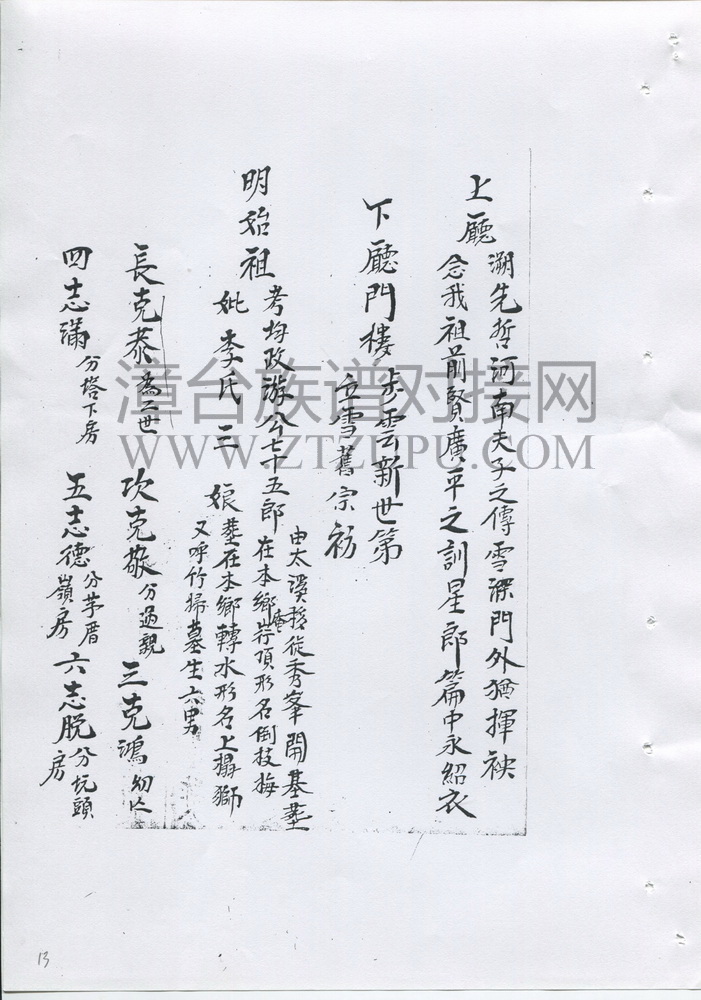 上廳
溯先哲河南夫子之傳雪深門外猶揮袂
念我祖前賢廣平之訓星郎篇中永紹衣
下廳門樓
步雲新世第
立雪舊宗祊
明始祖
考均政游公七十五郎
由太溪移徙秀峯開基塟
在本鄉庵岽頂形名倒技梅
妣李氏三娘
塟在本鄉轉水形名上樀獅
又呼竹掃墓生六男
長克泰 為二世
次克敬 分過親
三克鴻 幼亡
四志滿 分塔下房
五志德 分茅厝嶺房
六志脫 分坑頭房
漳台族谱对接网
WWW.ZTZUPU.COM
13